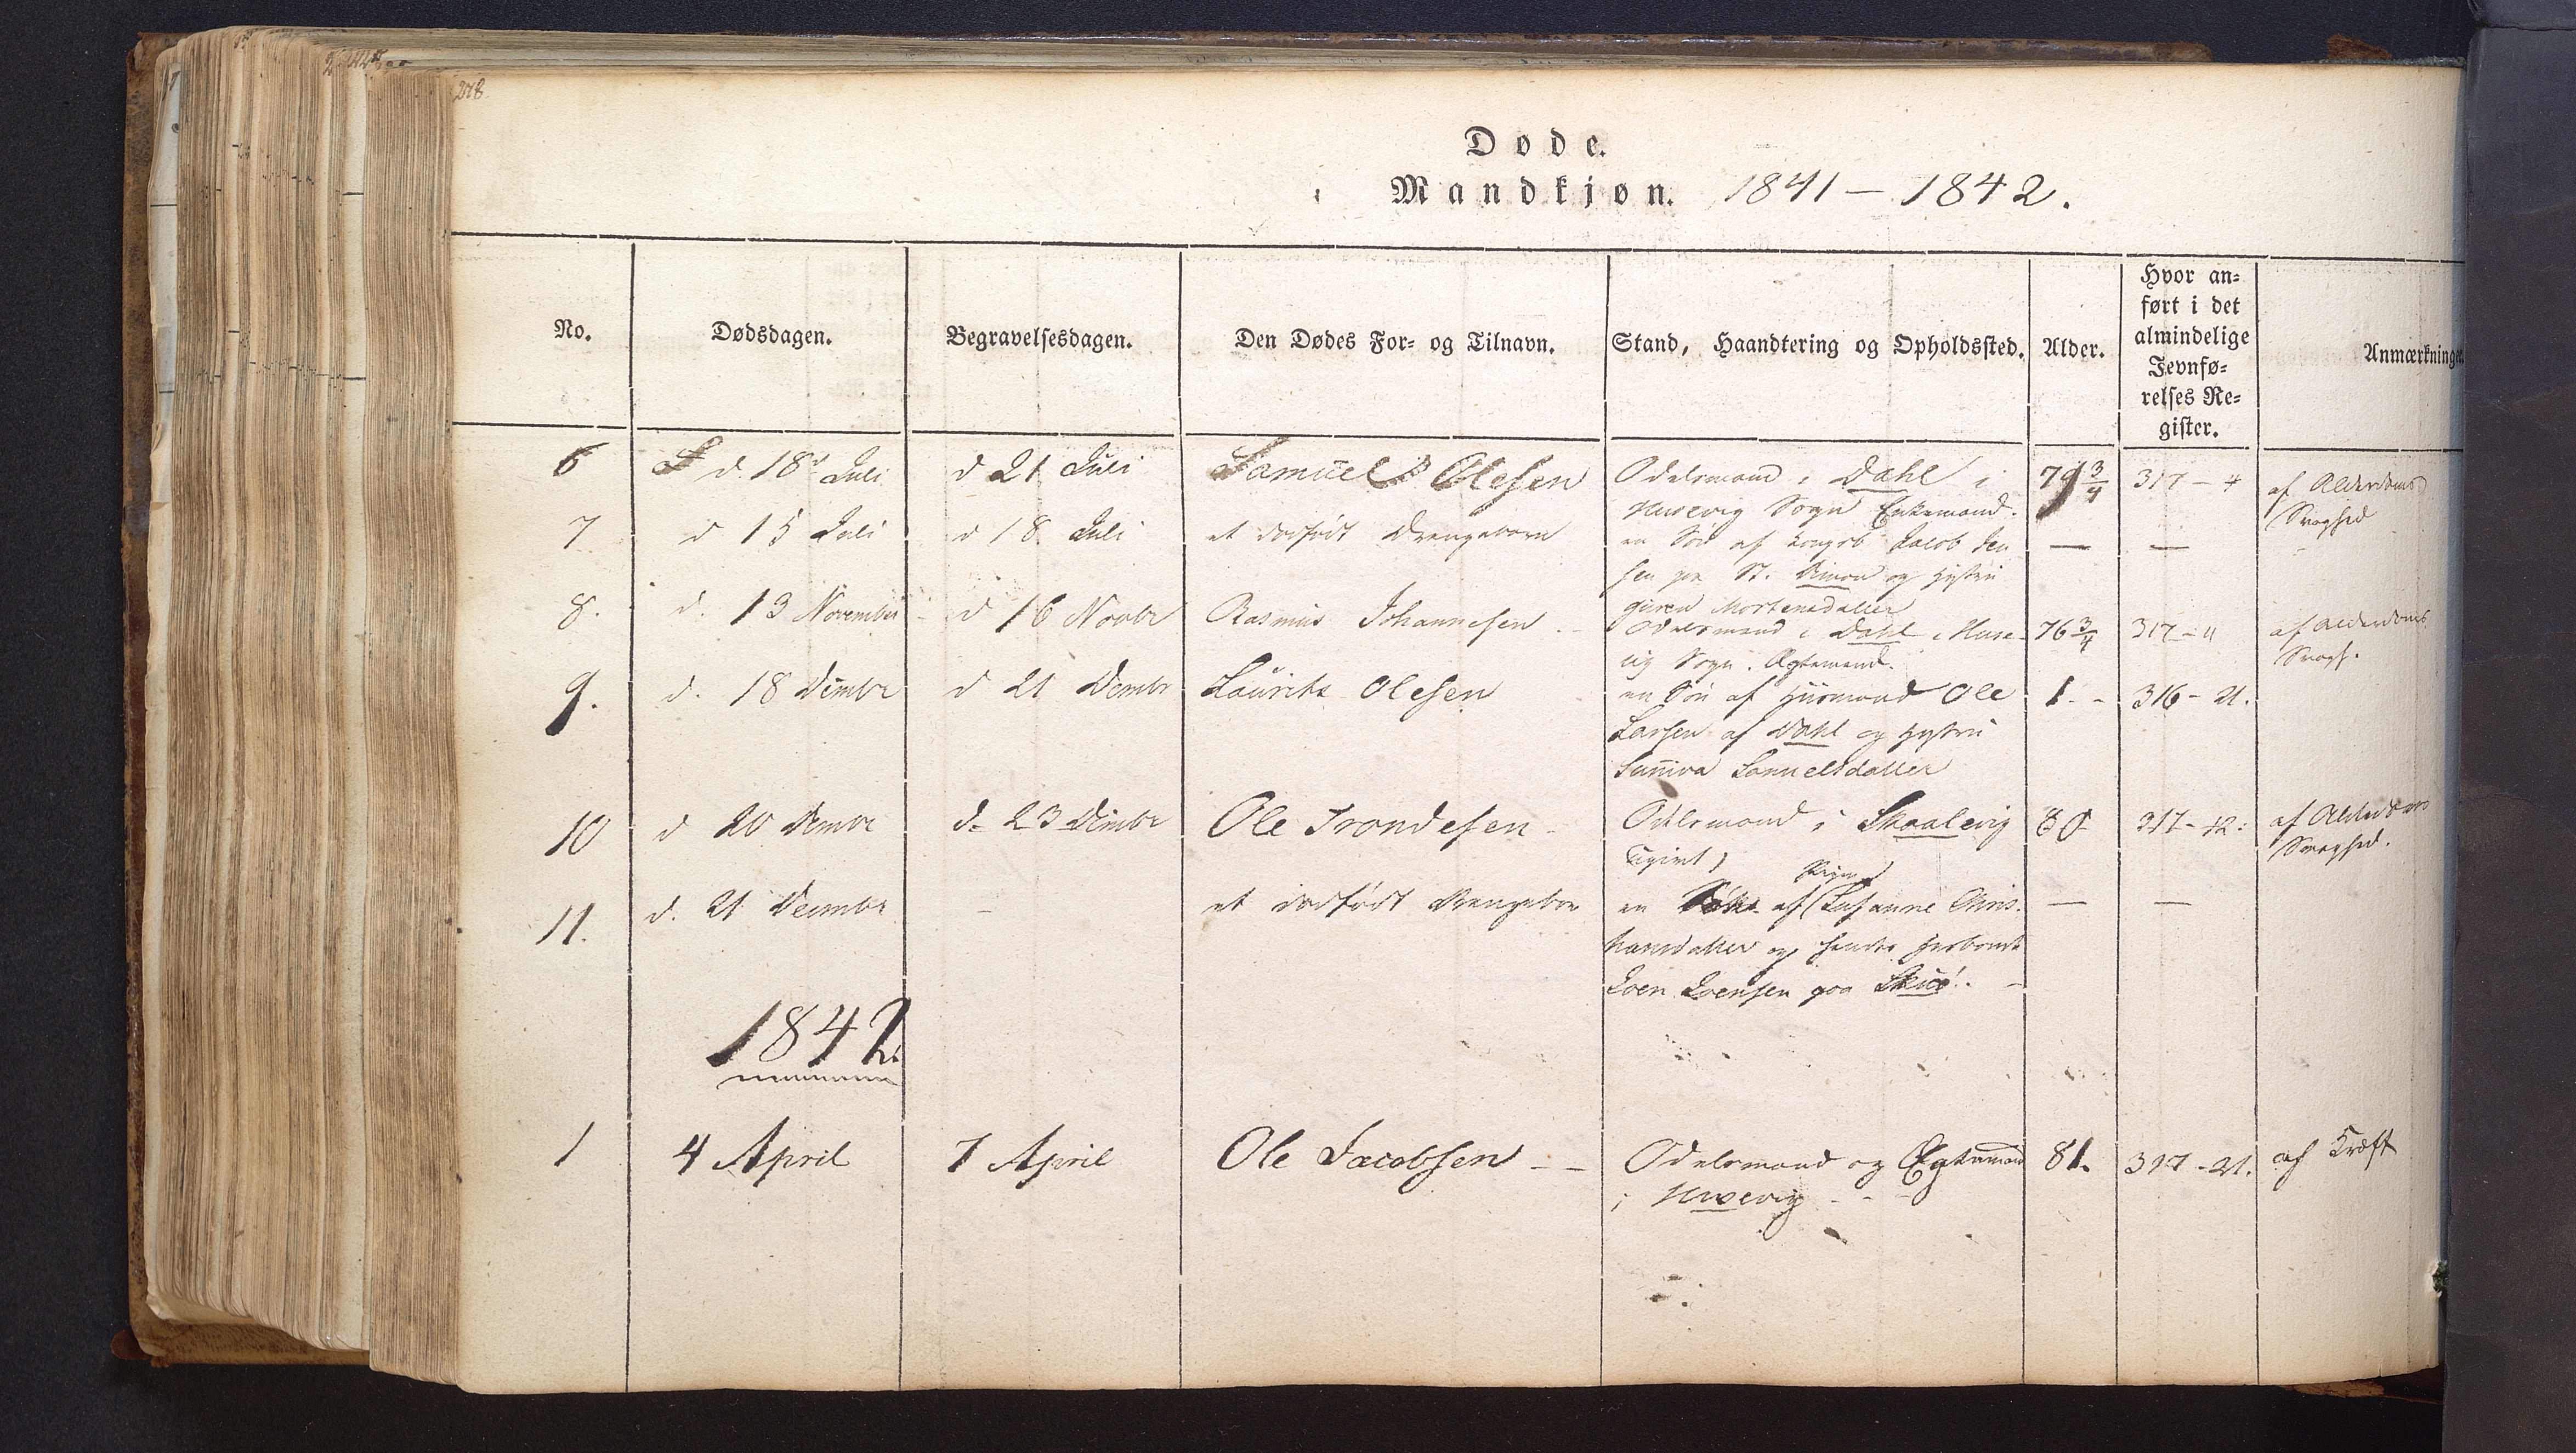 278
Døde.
Mandkjøn. 1841 – 1842.
No.
Dødsdagen.
Begravelsesdagen.
Den Dødes For- og Tilnavn.
Stand, Haandtering og Opholdssted.
Alder.
Hvor an-
ført i det
almindelige
Jevnfø-
relses Re-
gister.
Anmærkninger.
6 d. 18 Juli d 21 Juli Samuel Olesen Odelsmand i Dahl i 79 3/4 317 – 4 af Alderdoms
Husevig Sogn Enkemand. Svaghed
7 d 15 Juli d 18 Juli et dødfødt Drengebarn en Søn af Kongsb Jacob Jen — —
sen paa St. Dimon og Hustru
Mortensdatter
8. d. 13 November d 16 Novbr Rasmus Johannesen Odelsmand i Dahl i Huse- 76 3/4 317 – 11 af Alderdoms
vig Sogn. Ægtemand. Svagh.
9. d. 18 Dcmbr d 21 Dcmbr Laurits Olesen en Søn af Huusmand Ole 1 - - 316 – 21.
Larsen af Dahl og Hustru
Sunniva Samuelsdatter
10 d 20 Dcmbr d. 23 Dcmbr Ole Trondesen Odelsmand i Skaalevig 80 317 – 12. af Alderdoms
ugivt, Svaghed.
11. d. 21 Decmbr – et dødfødt Drengebarn en af Pigen Susanne Chris- — —
tiansdatter og hendes
Joen Joensen paa Skuø. –
1842.
1 4 April 7 April Ole Jacobsen – – Odelsmand og Egtemand 81. 317 – 21. af Kræft
i Husevig - -